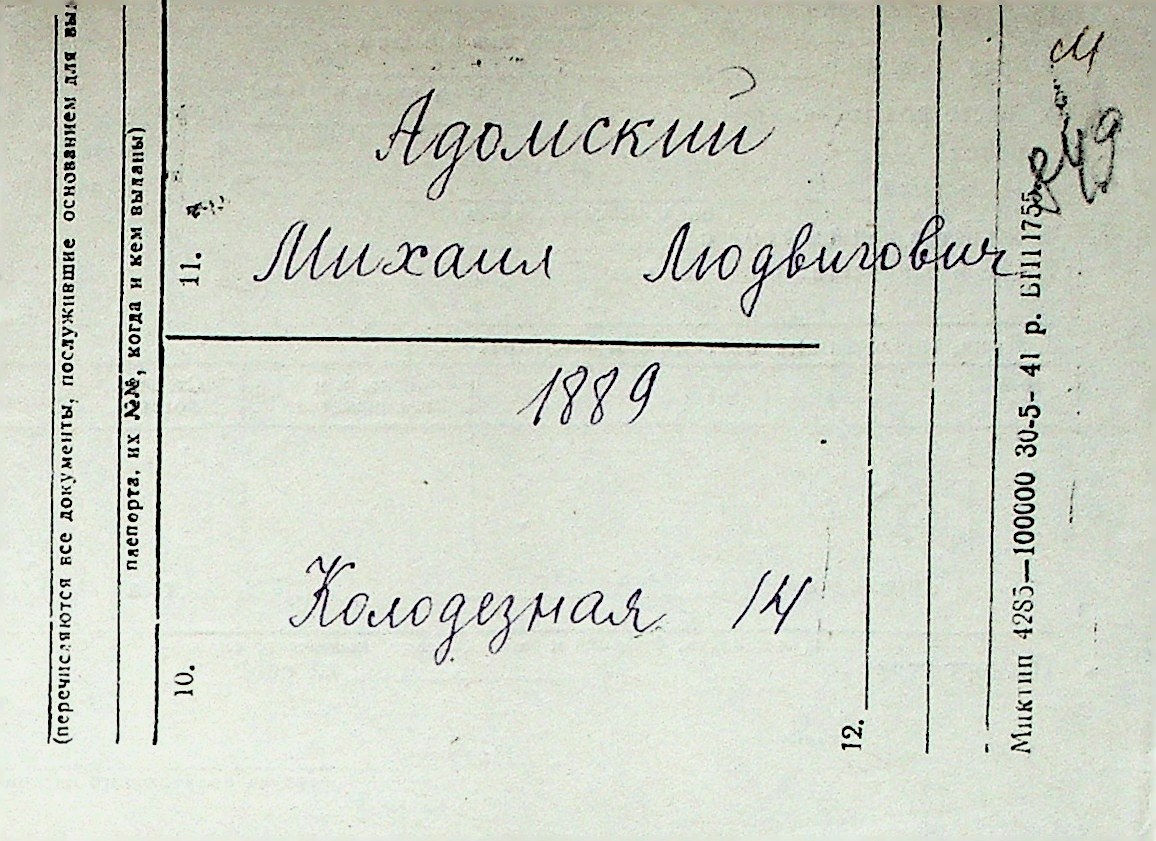 (перечисляются все документы, послужившие основанием для вы
паспорта, их №№, когда и кем выданы)
11.
Адомский
Михаил Людвигович
1889
Колодезная 14
10.
12.
Миктип 4285—100000 30-5- 41 р. БПП 1755
М
849